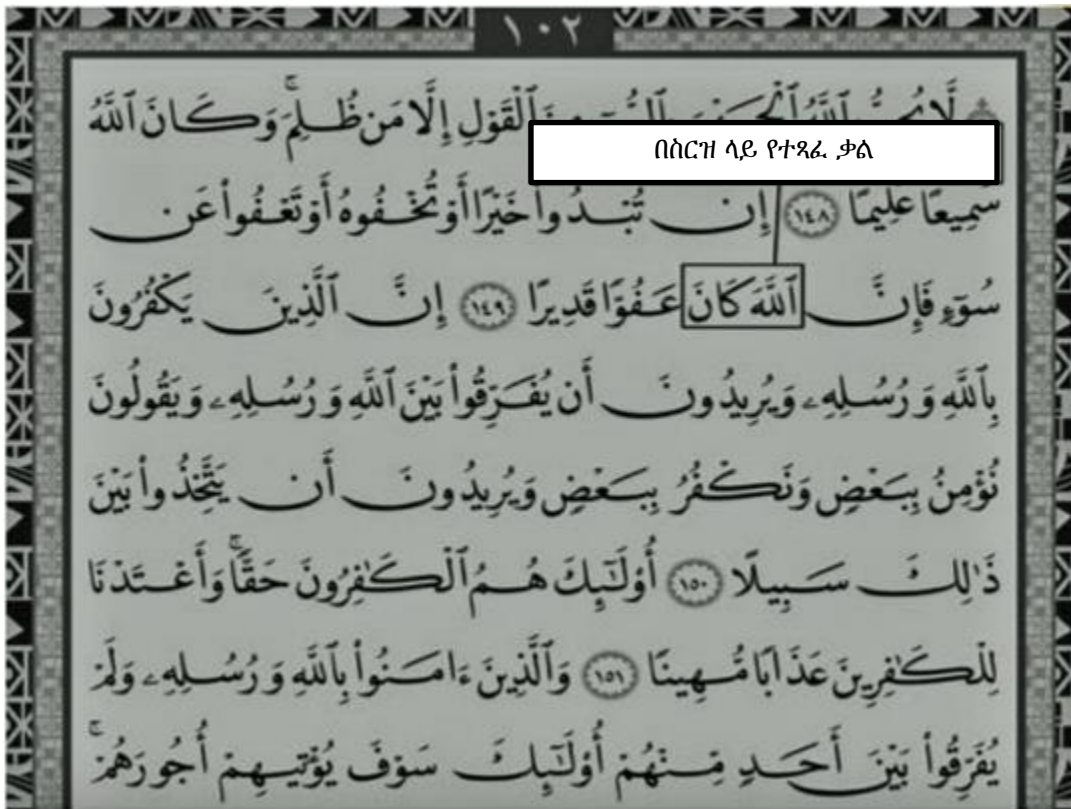 ١٠٢
ٱلْقَوْلِ إِلَّا مَن ظُلِمَ ۚ وَكَانَ ٱللَّهُ
በስርዝ ላይ የተጻፈ ቃል
سَمِيعًا عَلِيمًا ١٤٨ إِن تُبْدُوا۟ خَيْرًا أَوْ تُخْفُوهُ أَوْ تَعْفُوا۟ عَن
سُوٓءٍ فَإِنَّ ٱللَّهَ كَانَ عَفُوًّا قَدِيرًا ١٤٩ إِنَّ ٱلَّذِينَ يَكْفُرُونَ
بِٱللَّهِ وَرُسُلِهِۦ وَيُرِيدُونَ أَن يُفَرِّقُوا۟ بَيْنَ ٱللَّهِ وَرُسُلِهِۦ وَيَقُولُونَ
نُؤْمِنُ بِبَعْضٍ وَنَكْفُرُ بِبَعْضٍ وَيُرِيدُونَ أَن يَتَّخِذُوا۟ بَيْنَ
ذَٰلِكَ سَبِيلًا ١٥٠ أُو۟لَـٰٓئِكَ هُمُ ٱلْكَـٰفِرُونَ حَقًّا ۚ وَأَعْتَدْنَا
لِلْكَـٰفِرِينَ عَذَابًا مُّهِينًا ١٥١ وَٱلَّذِينَ ءَامَنُوا۟ بِٱللَّهِ وَرُسُلِهِۦ وَلَمْ
يُفَرِّقُوا۟ بَيْنَ أَحَدٍ مِّنْهُمْ أُو۟لَـٰٓئِكَ سَوْفَ يُؤْتِيهِمْ أُجُورَهُمْ ۗ